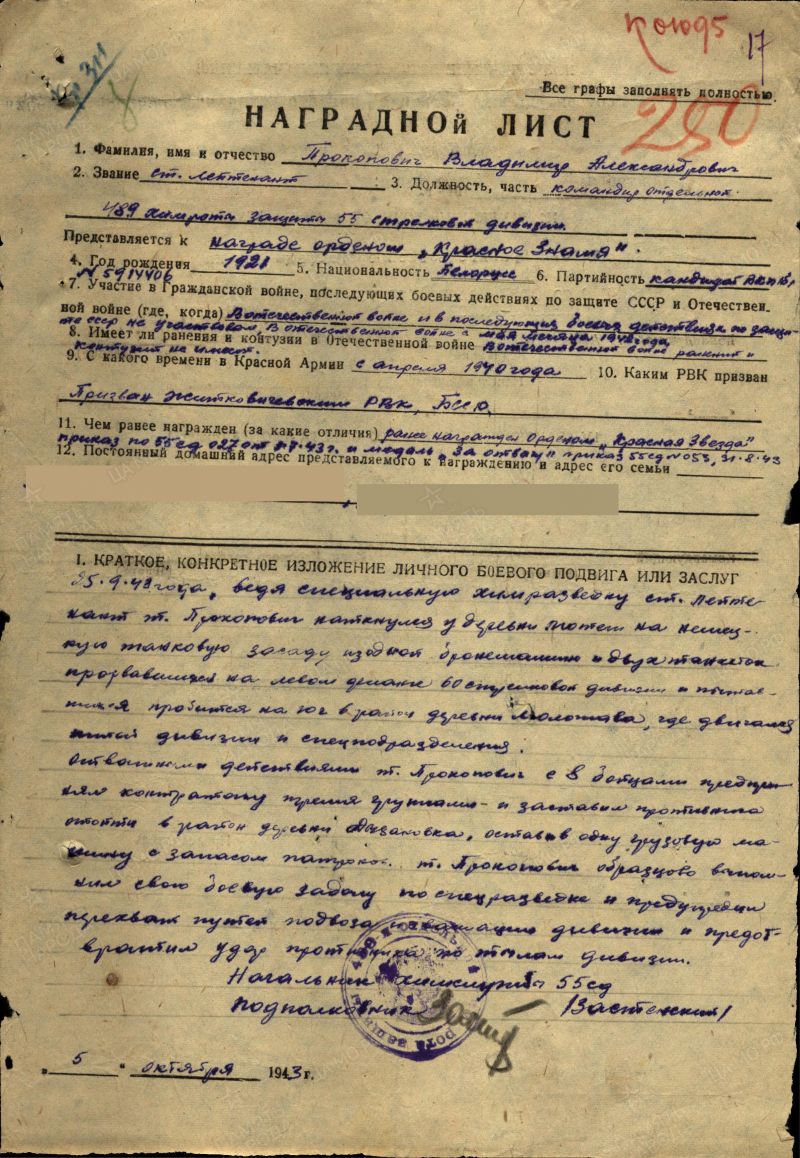 17
Все графы заполнять полностью.
250
НАГРАДНОЙ ЛИСТ
1. Фамилия, имя и отчество Прокопович Владимир Александрович
2. Звание ст. лейтенант 3. Должность, часть командир отдельной
489 химроты защиты 55 стрелковой дивизии.
Представляется к награде орденом „Красное Знамя".
4. Год рождения 1921 5. Национальность Белорусс 6. Партийность кандидат ВКП(б)
N 5914406
7. Участие в Гражданской войне, последующих боевых действиях по защите СССР и Отечествен-
ной войне (где, когда) В отечественной войне и в последующих боевых действиях по защи-
те ссср не участвовал, В отечественной войне с мая месяца 1942 года,
8. Имеет ли ранения и контузии в Отечественной войне В отечественной войне ранений и
контузий не имеет.
9. С какого времени в Красной Армии с апреля 1940 года 10. Каким РВК призван
Призван Житковичевским РВК, БССР
11. Чем ранее награжден (за какие отличия) ранее награжден Орденом „Красная Звезда"
приказ по 55 сд 027 от 7.43 г. и медаль „За отвагу" приказ 55сд N 053, 31.8.43
12. Постоянный домашний адрес представляемого к награждению и адрес его семьи
I. КРАТКОЕ, КОНКРЕТНОЕ ИЗЛОЖЕНИЕ ЛИЧНОГО БОЕВОГО ПОДВИГА ИЛИ ЗАСЛУГ
25.9.43 года, ведя специальную химразведку ст. лейте-
нант т. Прокопович наткнулся у деревни на немец-
кую танковую засаду из одной бронемашины и двух танкеток
прорвавшихся на левом фланге 60 стрелковой дивизии и пытав-
шихся пробится на юг в район деревни, где двигался
штаб дивизии и спецподразделения.
Отважными действиями т. Прокопович с 8 бойцами предпри-
нял контратаку тремя группами - и заставил противника
отойти в район деревни, оставив одну грузовую ма-
шину с запасом патронов. т. Прокопович образцово выпол-
нил свою боевую задачу по спецразведке и предупредил
перехват путей подвоза и эвакуации дивизии и предот-
вратил удар противника по тылам дивизии.
Начальник химслужбы 55 сд
Подполковник /Вастенский/
„5" октября 1943 г.